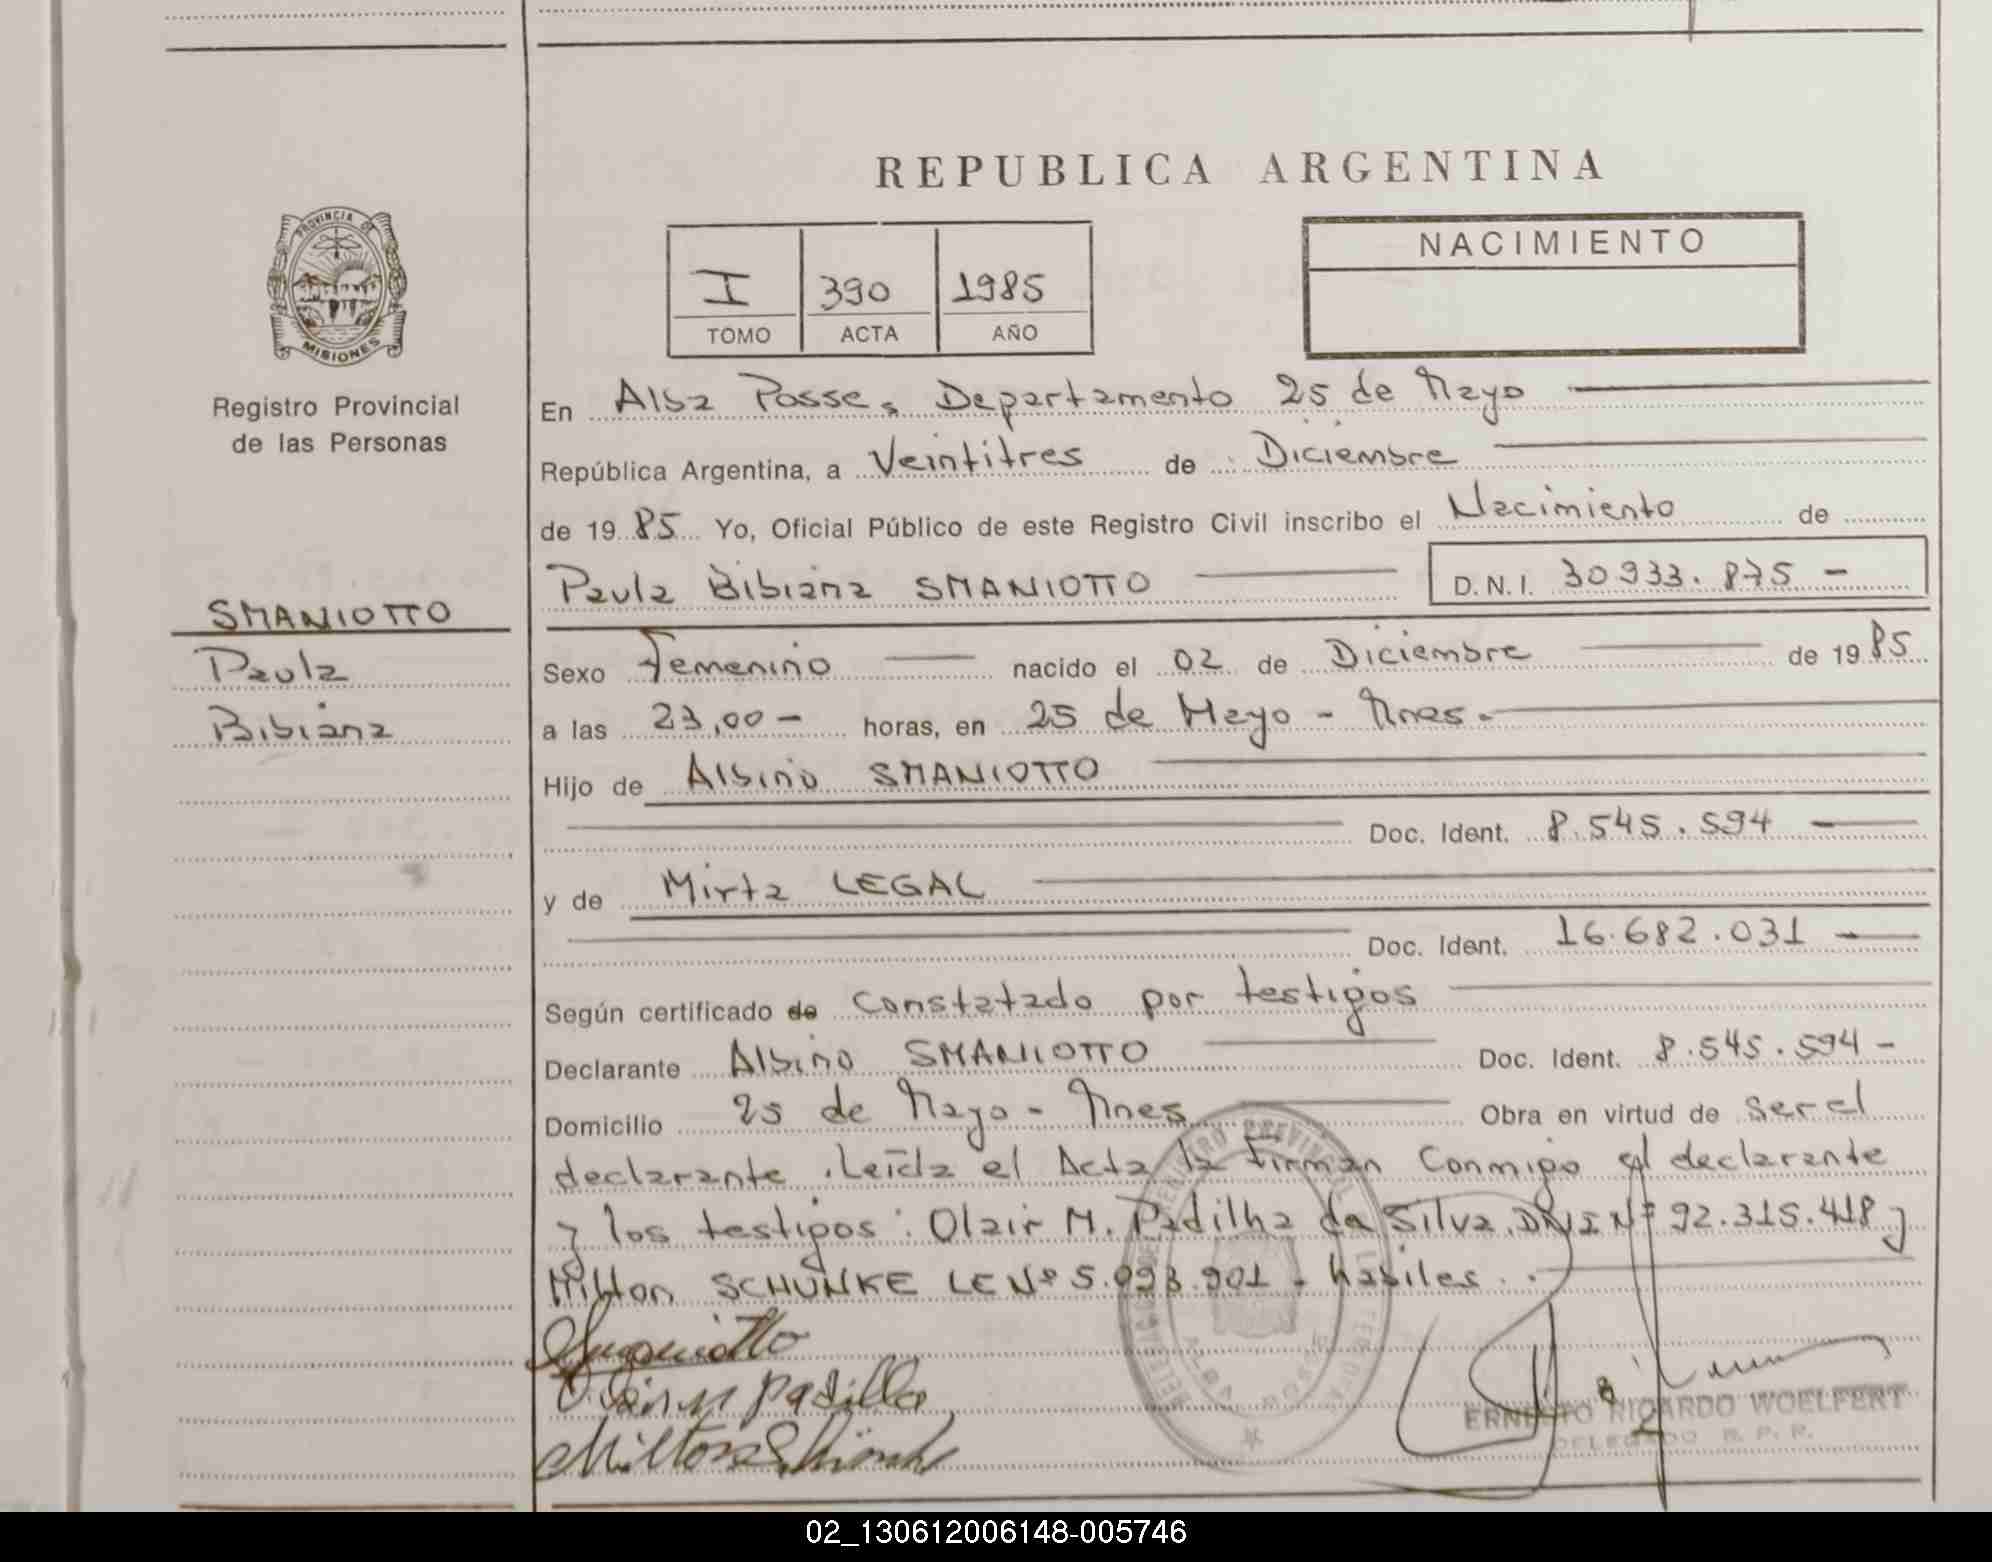 REPUBLICA ARGENTINA
PROVINCIA DE
MISIONES
I 390 1985
TOMO ACTA AÑO
NACIMIENTO
Registro Provincial
de las Personas
SMANIOTTO
Paula
Bibiana
En Alba Posse, Departamento 25 de Mayo
República Argentina, a Veintitres de Diciembre
de 1985 Yo, Oficial Público de este Registro Civil inscribo el Nacimiento de
Paula Bibiana SMANIOTTO D.N.I. 30933.875 -
Sexo Femenino nacido el 02 de Diciembre de 1985
a las 23,00 - horas, en 25 de Mayo - Mnes.
Hijo de Albino SMANIOTTO
Doc. Ident. 8.545.594
y de Mirta LEGAL
Doc. Ident. 16.682.031
Según certificado de Constatado por testigos
Declarante Albino SMANIOTTO Doc. Ident. 8.545.594 -
Domicilio 25 de Mayo - Mnes. Obra en virtud de ser el
declarante. Leída el Acta la firman conmigo el declarante
y los testigos: Olair M. Padilha da Silva, DNI Nº 92.315.418 y
Milton SCHUNKE LE Nº 5.093.901 - habiles.
Smaniotto
Olair M Padilla
Milton Schünke
ALBA POSSE
ERNESTO RICARDO WOELFERT
DELEGADO R. P. P.
02_130612006148-005746